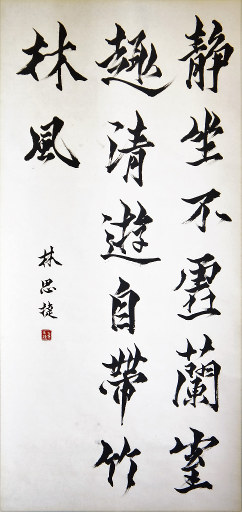 静坐不虛蘭室
趣清遊自帶竹
林風
林思捷